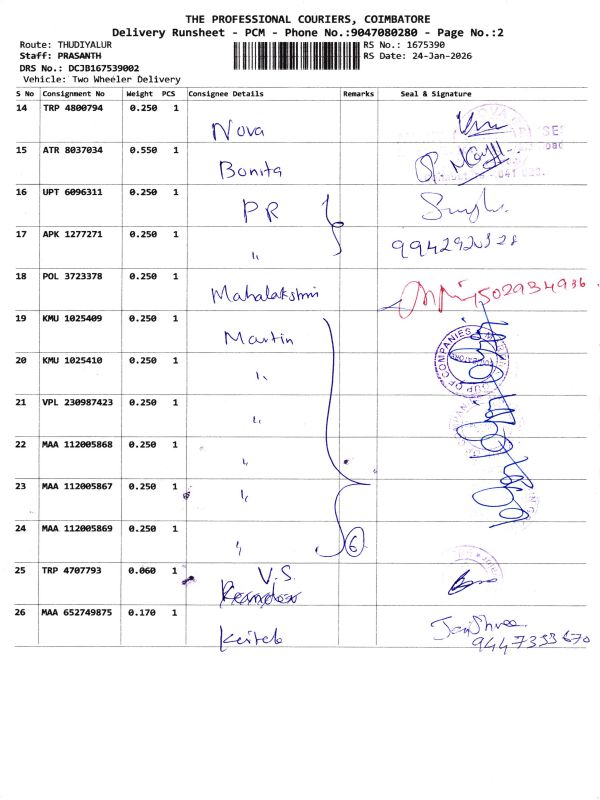 THE PROFESSIONAL COURIERS, COIMBATORE
Delivery Runsheet - PCM - Phone No.:9047080280 - Page No.:2
Route: THUDIYALUR
RS No.: 1675390
Staff: PRASANTH
RS Date: 24-Jan-2026
DRS No.: DCJB167539002
Vehicle: Two Wheeler Delivery
S No Consignment No Weight PCS Consignee Details Remarks Seal & Signature
14 TRP 4800794 0.250 1 Nova
15 ATR 8037034 0.550 1 Bonita
16 UPT 6096311 0.250 1 PR
17 APK 1277271 0.250 1 "
18 POL 3723378 0.250 1 Mahalakshmi
19 KMU 1025409 0.250 1 Martin
20 KMU 1025410 0.250 1 "
21 VPL 230987423 0.250 1 "
22 MAA 112005868 0.250 1 "
23 MAA 112005867 0.250 1 "
24 MAA 112005869 0.250 1 " 6
25 TRP 4707793 0.060 1 V.S.
26 MAA 652749875 0.170 1 JaiShree